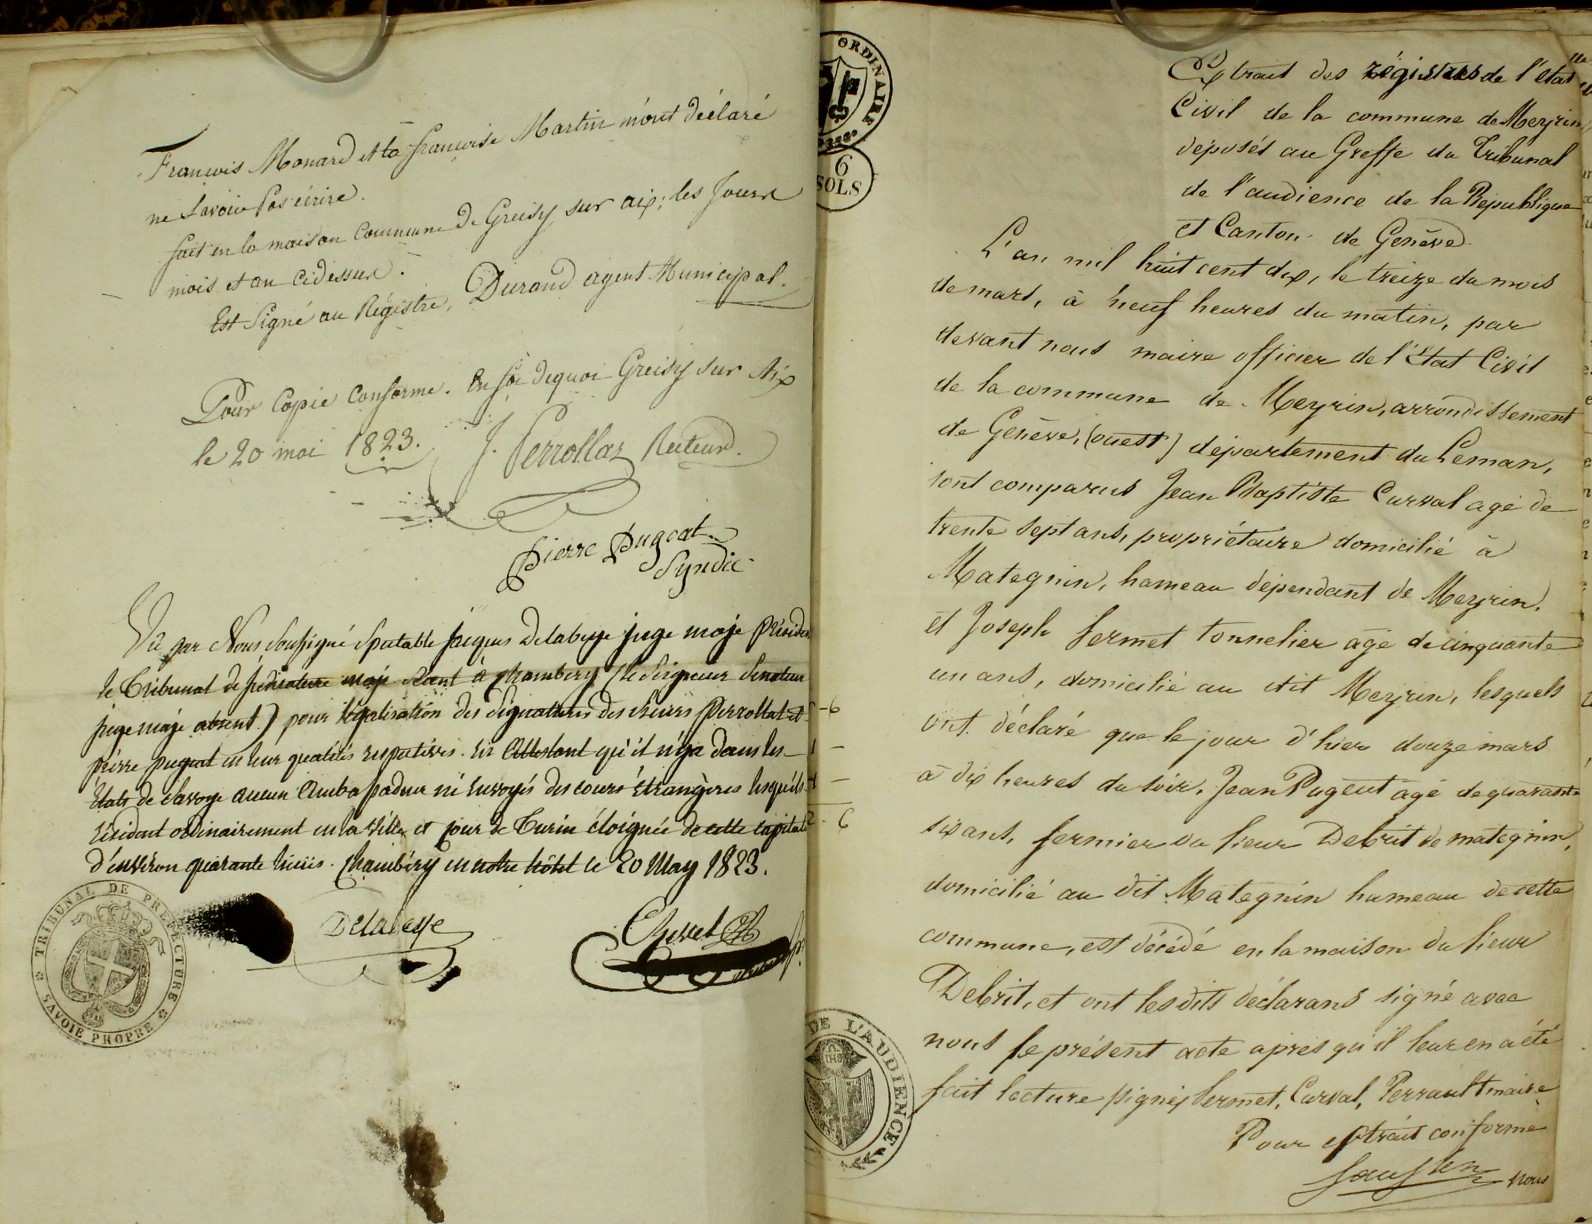 François Monard et la françoise Martin m'ont déclaré
ne Savoir Pas écrire.
fait en la maison Commune de Greisy sur aix; les Jours
mois et an cidessus.
Est Signé au Régistre, Durand agent Municipal.
Pour Copie Conforme. En foi dequoi Greisy sur Aix
le 20 mai 1823. J. Perrollaz Recteur.
Pierre Pugeat
Syndic
Vu par Nous soussigné Spectable Jacques Delabeye juge maje Présidant
le Tribunal de judicature maje séant à Chambéry (le Seigneur Senateur
juge maje absent) pour légalisation des Signatures des Sieurs Perrollat et
pierre pugeat en leur qualités respectives. en Attestant qu'il n'ya dans les
Etats de Savoye aucun Ambassadeur ni Envoyés des cours étrangères lesquels
résident ordinairement en la Ville et cour de Turin éloignée de cette capitale
d'environ quarante lieues. Chambéry en notre hôtel le 20 May 1823.
TRIBUNAL DE PREFECTURE
SAVOIE PROPRE
ORDINAIRE
6
SOLS
Extrait des régistres de l'état
Civil de la commune de Meyrin
déposés au Greffe du Tribunal
de l'audience de la République
et Canton de Genève.
L'an mil huit cent dix, le treize du mois
de mars, à neuf heures du matin, par
devant nous maire officier de l'Etat Civil
de la commune de Meyrin, arrondissement
de Genève, (ouest) département du Leman,
sont comparus Jean Baptiste Curval agé de
trente sept ans, propriétaire domicilié à
Mategnin, hameau dépendant de Meyrin,
et Joseph Sermet tonnelier agé de cinquante
un ans, domicilié au dit Meyrin, lesquels
ont déclaré que le jour d'hier douze mars
à dix heures du soir, Jean Pugeut agé de quarante
six ans, fermier du sieur Debrit de mategnin,
domicilié au dit Mategnin hameau de cette
commune, est décédé en la maison du sieur
Debrit, et ont les dits déclarans signé avec
nous le présent acte après qu'il leur en a été
fait lecture signés Sermet, Curval, Perrault maire
Pour extrait conforme
Nous
DE L'AUDIENCE